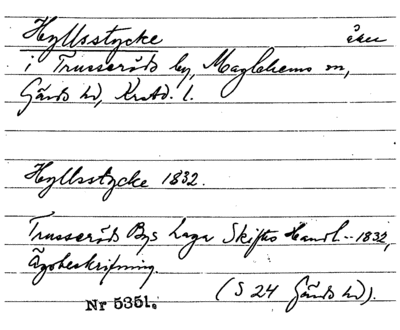 Hyllsstycke åker
i Trusseröds by, Maglehems sn,
Gärds hd, Krstd. l.
Hyllsstycke 1832.
Trusseröds Bys Laga Skiftes Handl. - 1832,
Ägobeskrifning.
(S 24 Gärds hd).
Nr 5351.